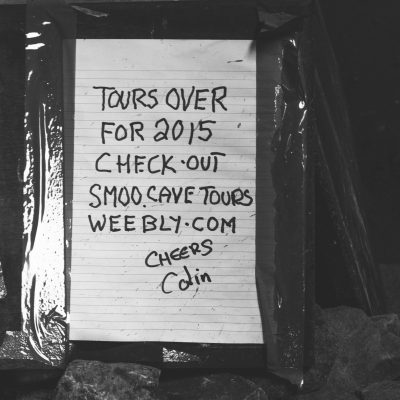 TOURS OVER
FOR 2015
CHECK·OUT
SMOO.CAVE TOURS
WEEBLY·COM
CHEERS
Colin